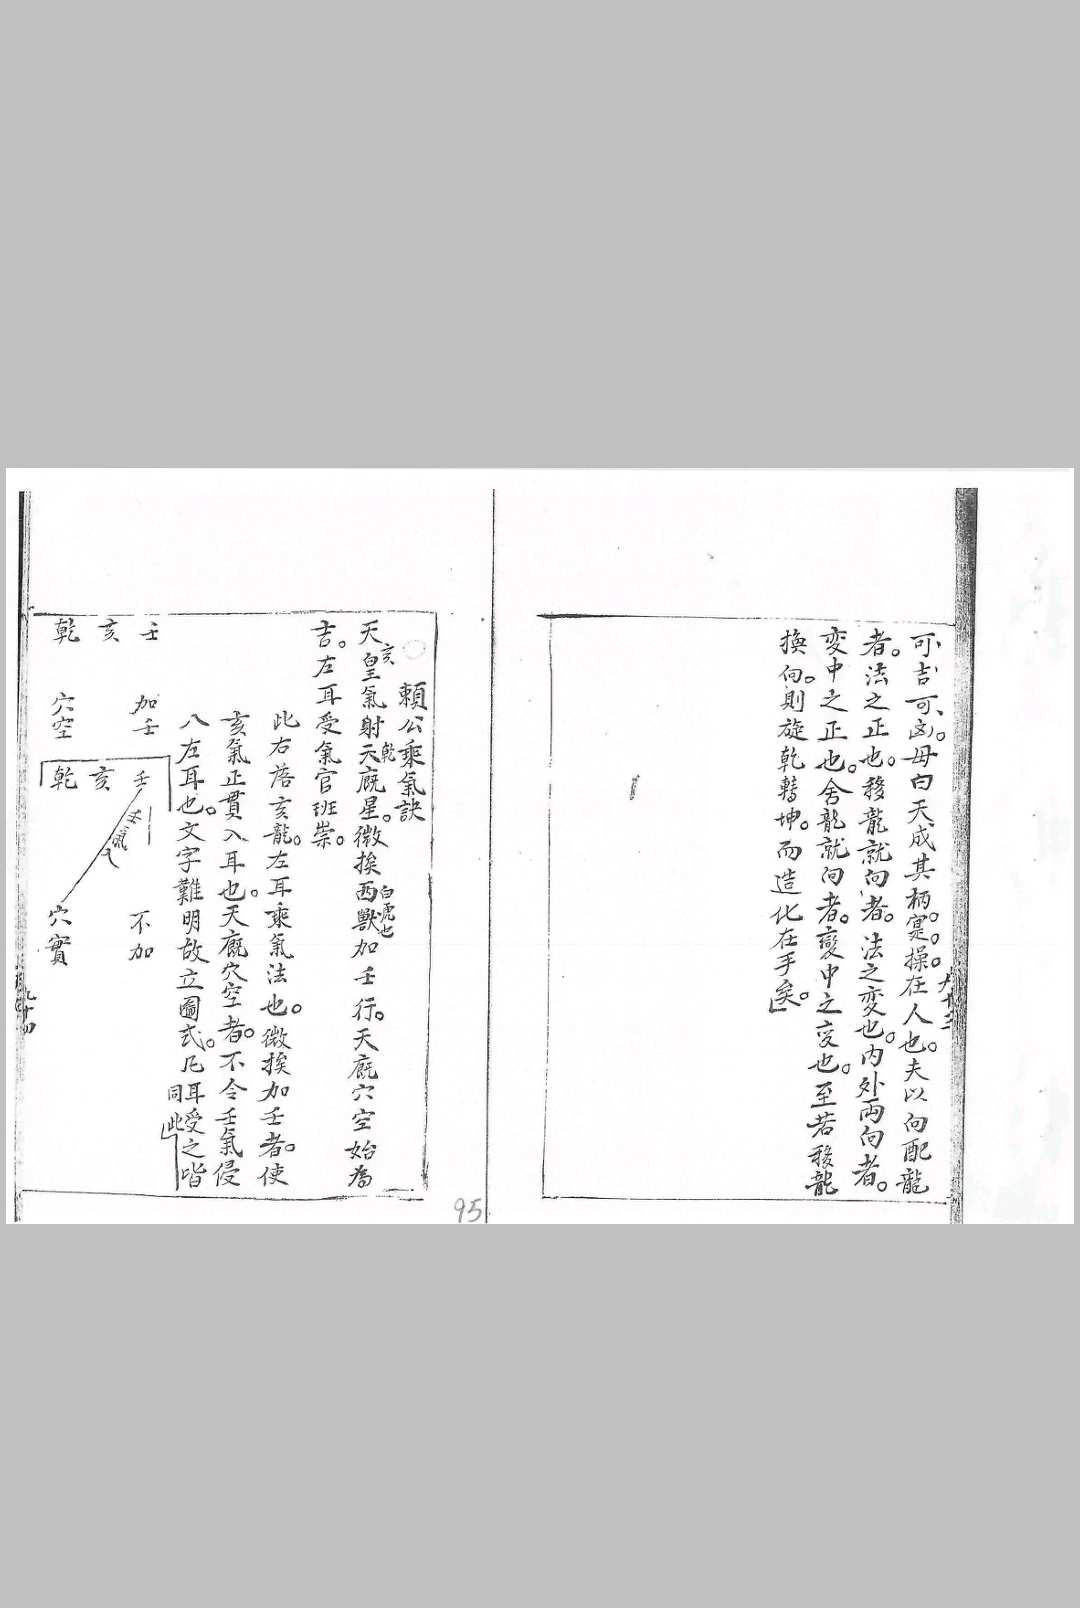 可吉可凶。毋曰天成其柄。寔。操在人也。夫以向配龍
者。法之正也。移龍就向者。法之変也。内外両向者。
変中之正也。舍龍就向者。變中之变也。至若移龍
換向。則旋乾轉坤。而造化在手矣。
九十三
賴公乘氣訣
天皇氣射天厩星。微挨西獸加壬行。天厩穴空始為
亥
乾
白虎也
吉。左耳受氣官班崇。
此右落亥龍。左耳乘氣法也。微挨加壬者。使
亥氣正貫入耳也。天厩穴空者。不令壬氣侵
八左耳也。文字難明故立圖式。凡耳受之皆
同此
壬 加壬
亥
乾 穴空
壬 壬氣入 不加
亥
乾 穴實
九十四
95